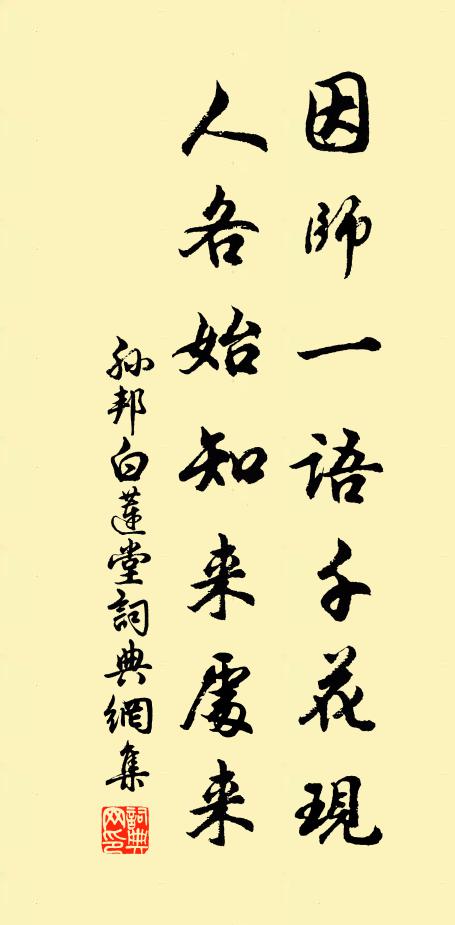 因師一語千花現
人各始知来處来
孫邦白蓮堂詞典網集
詞典网印